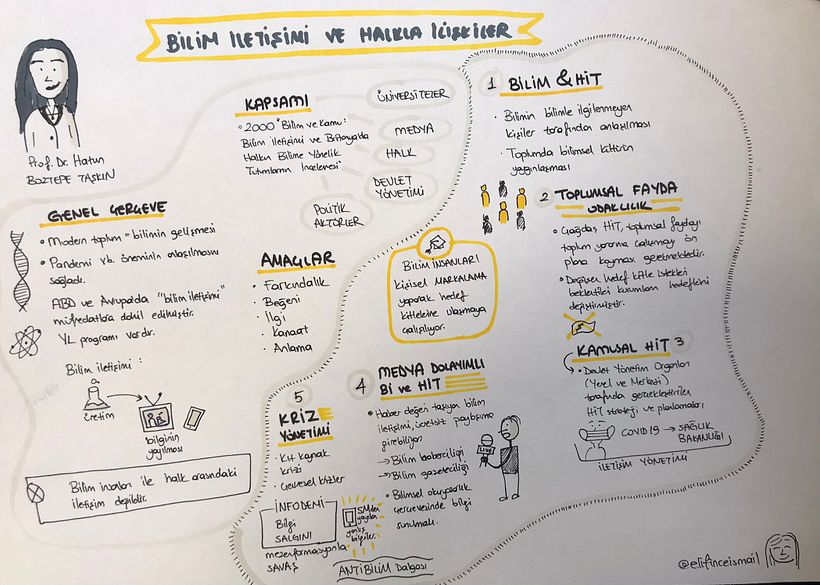 BİLİM İLETİŞİMİ VE HALKLA İLİŞKİLER
Prof. Dr. Hatun
BOZTEPE TAŞKIN
KAPSAMI
• 2000 "Bilim ve Kamu:
Bilim İletişimi ve Britanya'da
Halkın Bilime Yönelik
Tutumların İncelemesi"
ÜNİVERSİTELER
MEDYA
HALK
DEVLET
YÖNETİMİ
POLİTİK
AKTÖRLER
GENEL ÇERÇEVE
• Modern toplum = bilimin gelişmesi
• Pandemi vb. öneminin anlaşılmasını
sağladı.
ABD ve Avrupa'da "bilim iletişimi"
müfredatlara dahil edilmiştir.
YL programı vardır.
Bilim iletişimi:
üretim
bilginin
yayılması
Bilim insanları ile halk arasındaki
iletişim değildir.
AMAÇLAR
• Farkındalık
• Beğeni
• İlgi
• Kanaat
• Anlama
BİLİM İNSANLARI
KİŞİSEL MARKALAMA
yaparak hedef
kitlelerine ulaşmaya
çalışılıyor.
1 BİLİM & HİT
• Bilimin bilimle ilgilenmeyen
kişiler tarafından anlaşılması
• Toplumda bilimsel kültürün
yaygınlaşması
2 TOPLUMSAL FAYDA
ODAKLILIK
• Çağdaş HİT, toplumsal faydayı
toplum yararına çalışmayı ön
plana koyması gerekmektedir.
• Değişen hedef kitle istekleri
beklentileri kurumların hedeflerini
değiştirmiştir.
KAMUSAL HİT 3
• Devlet Yönetim Organları
(Yerel ve Merkezi)
tarafından gerçekleştirilen
HİT strateji ve planlamaları
COVID19 → SAĞLIK
BAKANLIĞI
İLETİŞİM YÖNETİMİ
4 MEDYA DOLAYIMLI
Bİ ve HİT
• Haber değeri taşıyan bilim
iletişimi, ücretsiz paylaşıma
girebiliyor.
→ Bilim haberciliği
→ Bilim gazeteciliği
• Bilimsel okuryazarlık
çerçevesinde bilgi
sunulmalı.
LIVE
5
KRİZ
YÖNETİMİ
• Kıt kaynak
krizi
• Çevresel krizler
İNFODEMİ
Bilgi
SALGINI
SM'den
yayılan
yanlış
bilgiler.
mezenformasyonla
SAVAŞ
ANTİBİLİM Dalgası
@elifinceismail